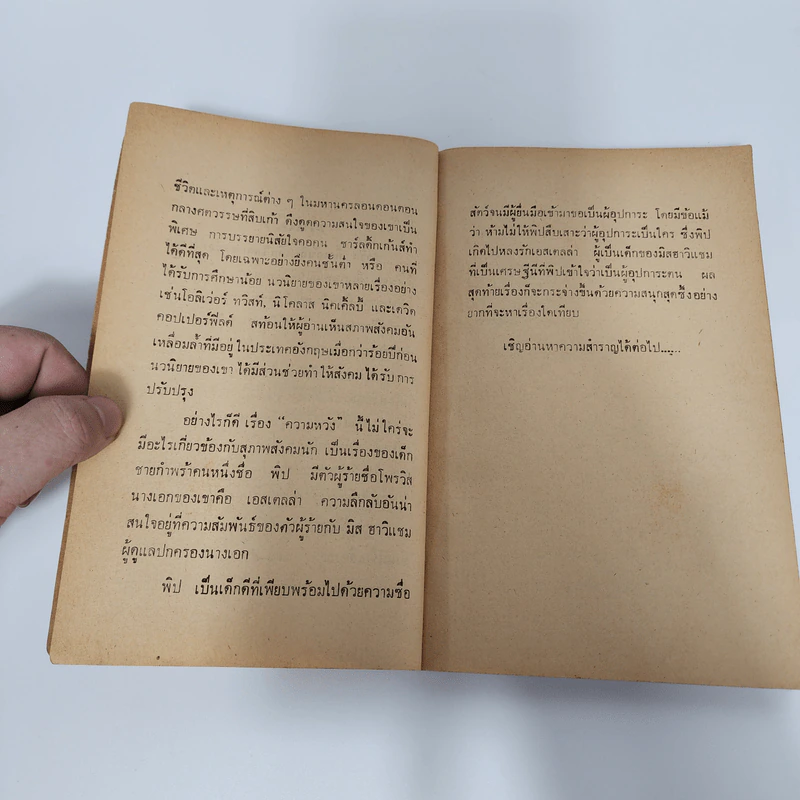 ชีวิตและเหตุการณ์ต่าง ๆ ในมหานครลอนดอนตอน
กลางศตวรรษที่สิบเก้า ดึงดูดความสนใจของเขาเป็น
พิเศษ การบรรยายนิสัยใจคอคน ชาร์ลดิ๊กเก้นส์ทำ
ได้ดีที่สุด โดยเฉพาะอย่างยิ่งคนชั้นต่ำ หรือ คนที่
ได้รับการศึกษาน้อย นวนิยายของเขาหลายเรื่องอย่าง
เช่นโอลิเวอร์ ทวิสท์, นิโคลาส นิคเคิ้ลบี้ และเดวิด
คอปเปอร์ฟิลด์ สท้อนให้ผู้อ่านเห็นสภาพสังคมอัน
เหลื่อมล้ำที่มีอยู่ในประเทศอังกฤษเมื่อกว่าร้อยปีก่อน
นวนิยายของเขา ได้มีส่วนช่วยทำให้สังคม ได้รับ การ
ปรับปรุง
อย่างไรก็ดี เรื่อง “ความหวัง” นี้ไม่ใคร่จะ
มีอะไรเกี่ยวข้องกับสุภาพสังคมนัก เป็นเรื่องของเด็ก
ชายกำพร้าคนหนึ่งชื่อ พิป มีตัวผู้ร้ายชื่อโพรวิส
นางเอกของเขาคือ เอสเตลล่า ความลึกลับอันน่า
สนใจอยู่ที่ความสัมพันธ์ของตัวผู้ร้ายกับ มิส ฮาวิแชม
ผู้ดูแลปกครองนางเอก
พิป เป็นเด็กดีที่เพียบพร้อมไปด้วยความซื่อ
สัตว์จนมีผู้ยื่นมือเข้ามาขอเป็นผู้อุปการะ โดยมีข้อแม้
ว่า ห้ามไม่ให้พิปสืบเสาะว่าผู้อุปการะเป็นใคร ซึ่งพิป
เกิดไปหลงรักเอสเตลล่า ผู้เป็นเด็กของมิสฮาวิแชม
ที่เป็นเศรษฐีนีที่พิปเข้าใจว่าเป็นผู้อุปการะตน ผล
สุดท้ายเรื่องก็จะกระจ่างขึ้นด้วยความสนุกสุดซึ้งอย่าง
ยากที่จะหาเรื่องใดเทียบ
เชิญอ่านหาความสำราญได้ต่อไป.......